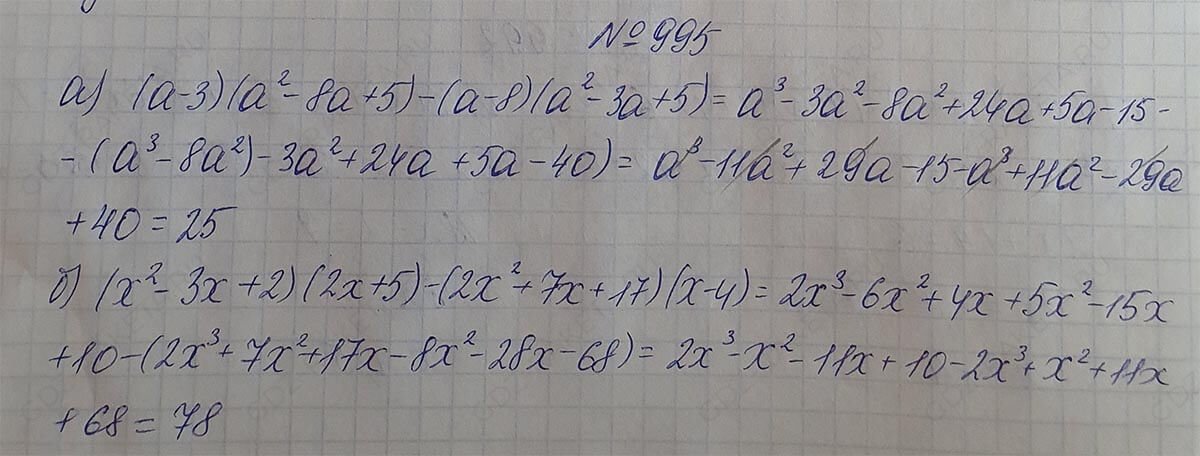 №995
а) (a-3)(a²-8a+5)-(a-8)(a²-3a+5)=a³-3a²-8a²+24a+5a-15-
-(a³-8a²)-3a²+24a+5a-40)=a³-11a²+29a-15-a³+11a²-29a
+40=25
б) (x²-3x+2)(2x+5)-(2x²+7x+17)(x-4)=2x³-6x²+4x+5x²-15x
+10-(2x³+7x²+17x-8x²-28x-68)=2x³-x²-11x+10-2x³+x²+11x
+68=78